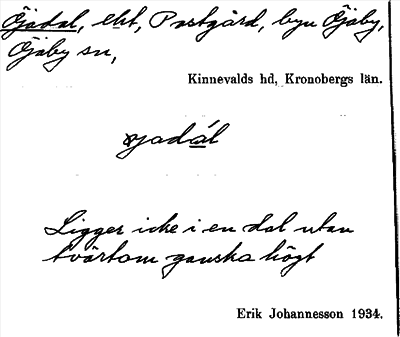 Öjadal, lht, Prostgård, byn Öjaby,
Öjaby sn,
Kinnevalds hd, Kronobergs län.
Ligger icke i en dal utan
tvärtom ganska högt
Erik Johannesson 1934.